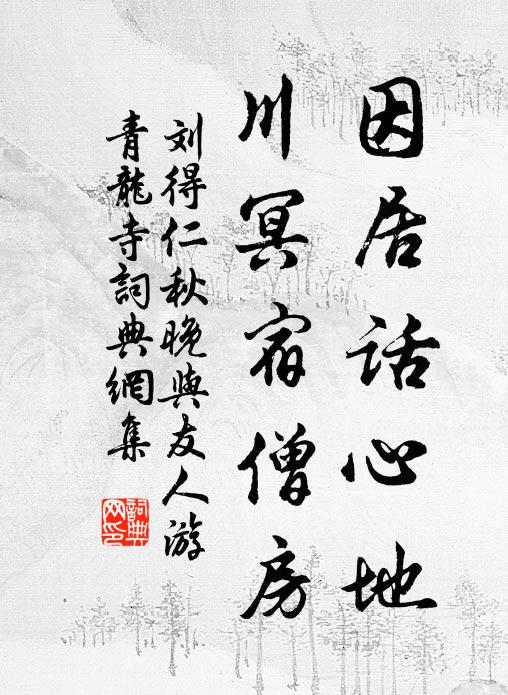 因居话心地
川冥宿僧房
刘得仁秋晚與友人游
青龍寺詞典網集
詞典
网印